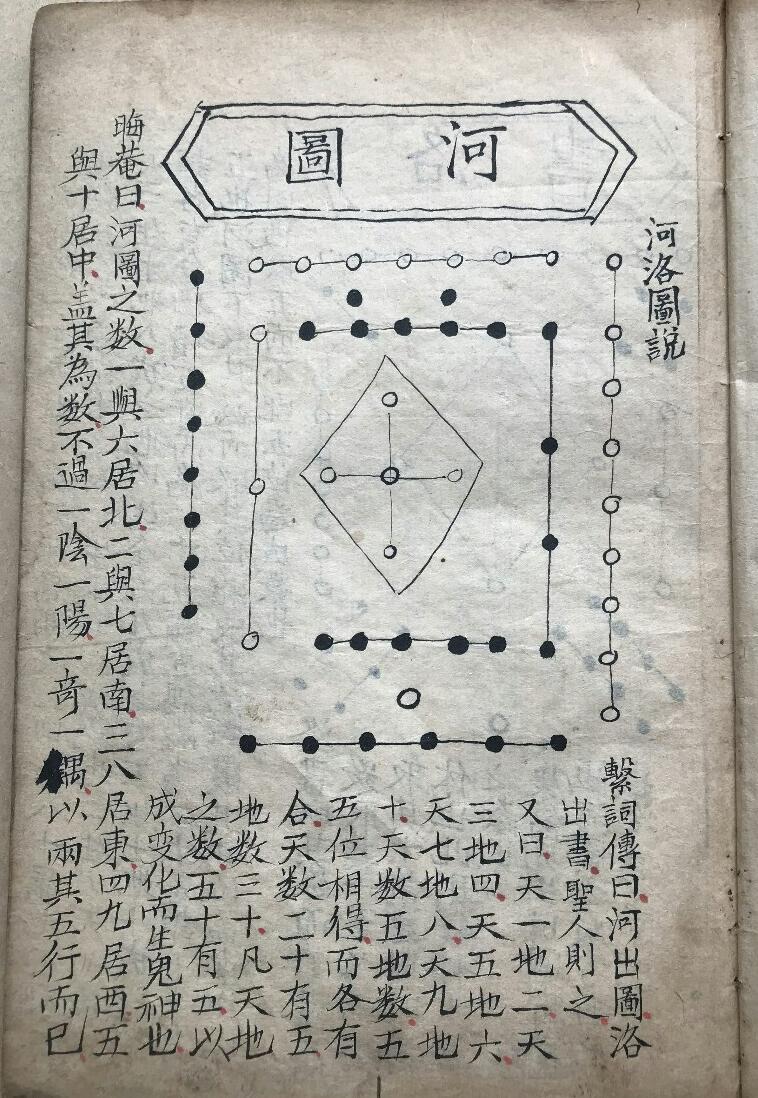 河圖
河洛圖說
繫詞傳曰河出圖洛
出書聖人則之
又曰天一地二天
三地四天五地六
天七地八天九地
十天数五地数五
五位相得而各有
合天数二十有五
地数三十凡天地
之数五十有五以
成变化而生鬼神也
晦菴曰河圖之数一與六居北二與七居南三八居東四九居西五
與十居中盖其為数不過一陰一陽一竒一耦以兩其五行而已